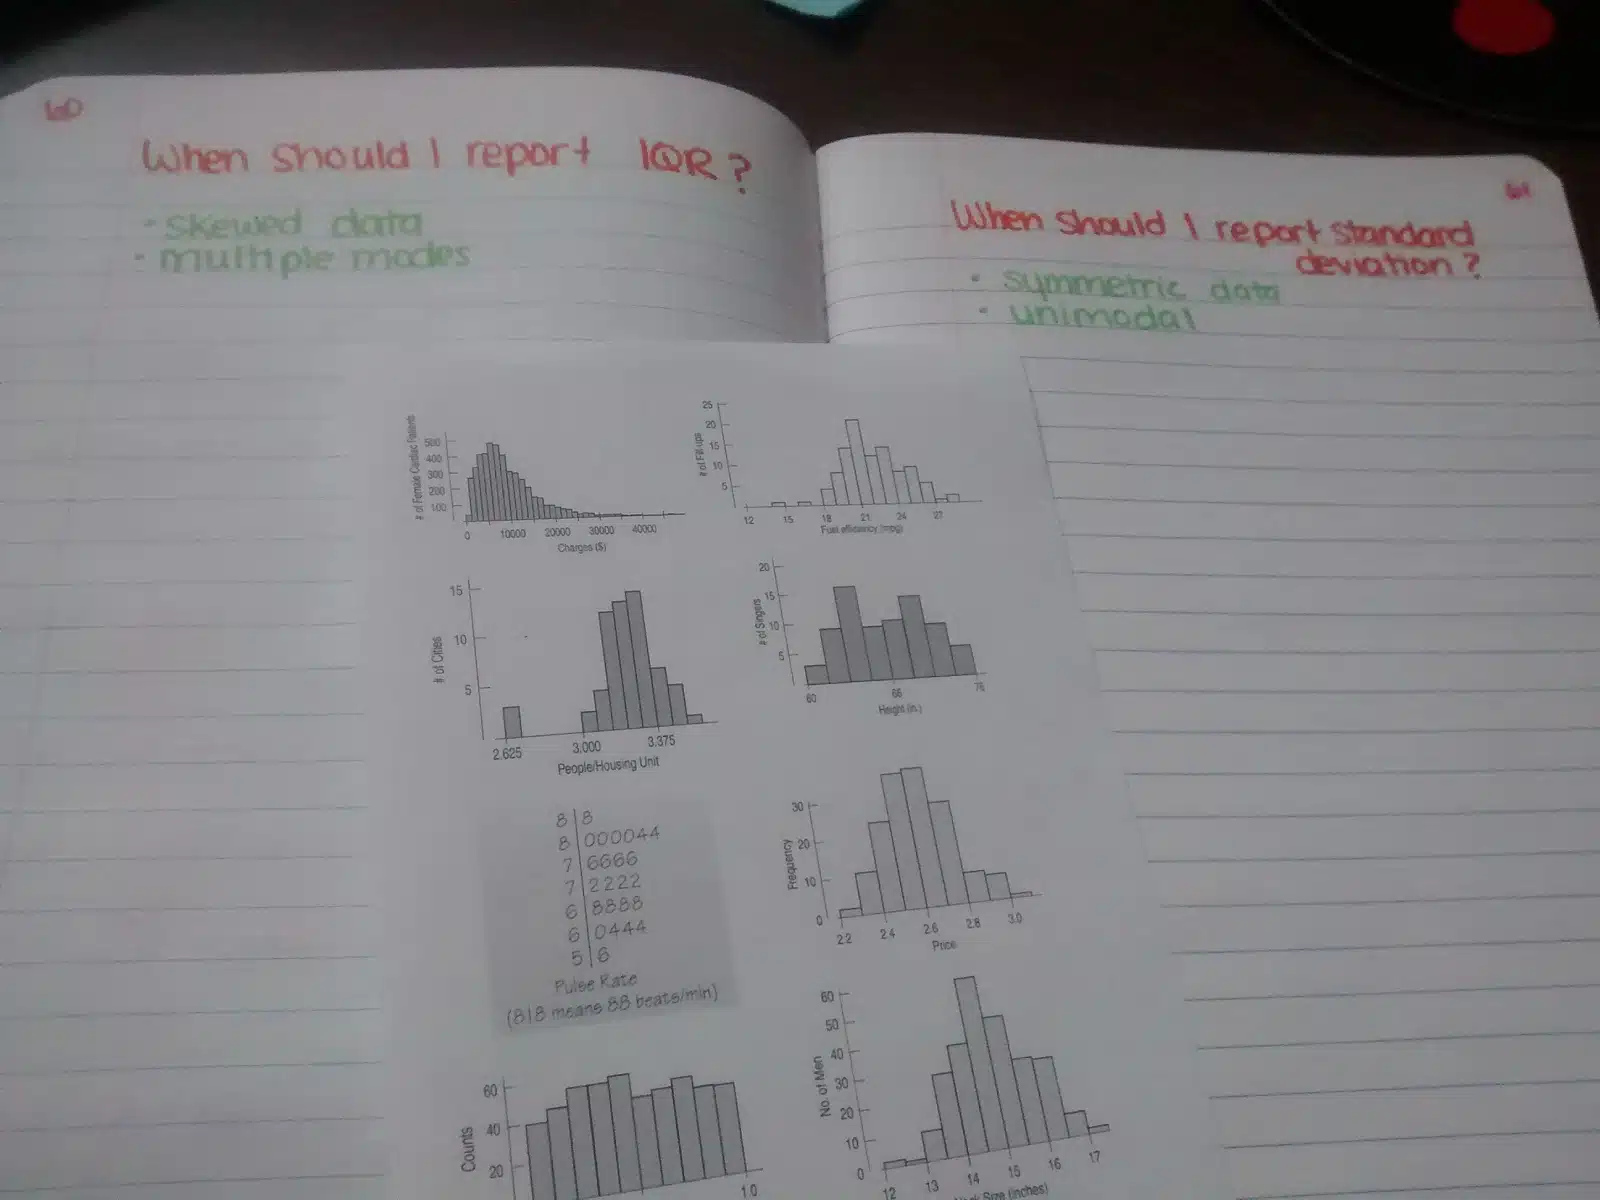 60
When should I report IQR?
- skewed data
- multiple modes
61
When should I report standard
deviation?
- symmetric data
- unimodal
# of Female Cardiac Patients
500
400
300
200
100
0 10000 20000 30000 40000
Charges ($)
# of Fill-ups
25
20
15
10
5
12 15 18 21 24 27
Fuel efficiency (mpg)
# of Cities
15
10
5
2.625 3.000 3.375
People/Housing Unit
# of Singers
20
15
10
5
60 66 76
Height (in.)
8|8
8|000044
7|6666
7|2222
6|8888
6|0444
5|6
Pulse Rate
(8|8 means 88 beats/min)
Frequency
30
20
10
0
2.2 2.4 2.6 2.8 3.0
Price
Counts
60
40
20
1.0
No of Men
60
50
40
30
20
10
0
12 13 14 15 16 17
Size (inches)